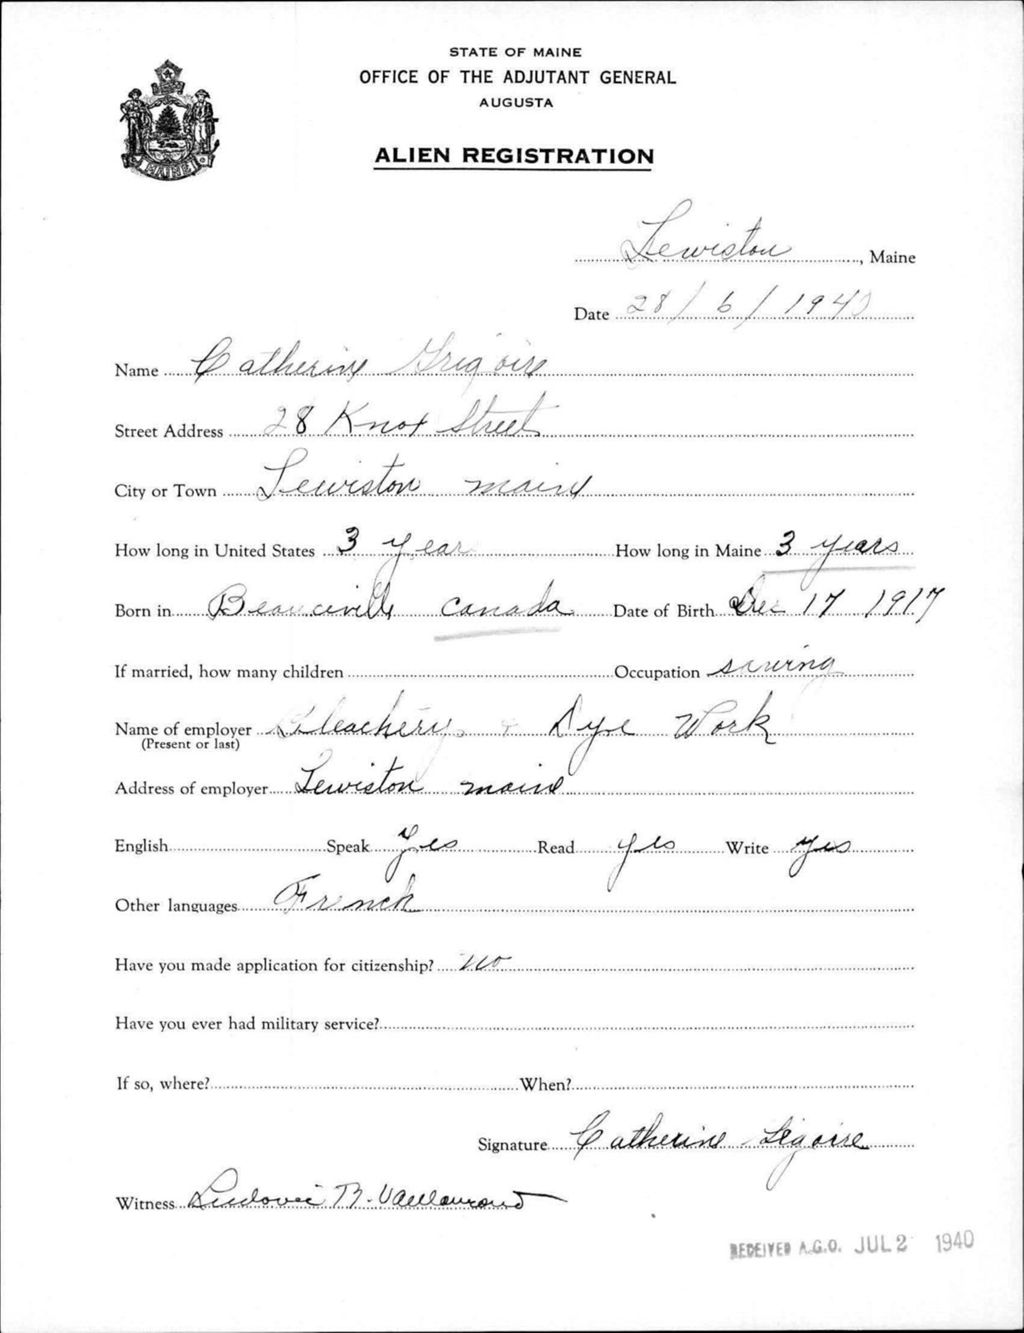 STATE OF MAINE
OFFICE OF THE ADJUTANT GENERAL
AUGUSTA
ALIEN REGISTRATION
MAINE
Lewiston, Maine
Date 28/6/1940
Name Catherine Grigoire
Street Address 28 Knox Street
City or Town Lewiston maine
How long in United States 3 year How long in Maine 3 years
Born in Beauceville Canada Date of Birth Dec 17 1917
If married, how many children Occupation sewing
Name of employer Bleachery & Dye Work
(Present or last)
Address of employer Lewiston maine
English Speak yes Read yes Write yes
Other languages French
Have you made application for citizenship? no
Have you ever had military service?
If so, where? When?
Signature Catherine
Witness Ludovic
RECEIVED A.G.O. JUL 2 1940